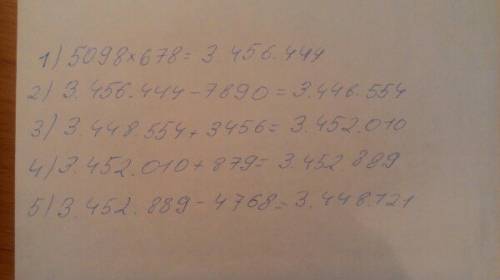 1) 5098×678= 3.456.444
2) 3.456.444-7890=3.448.554
3) 3.448.554+3456=3.452.010
4) 3.452.010+879=3.452.889
5) 3.452.889-4768=3.448.121